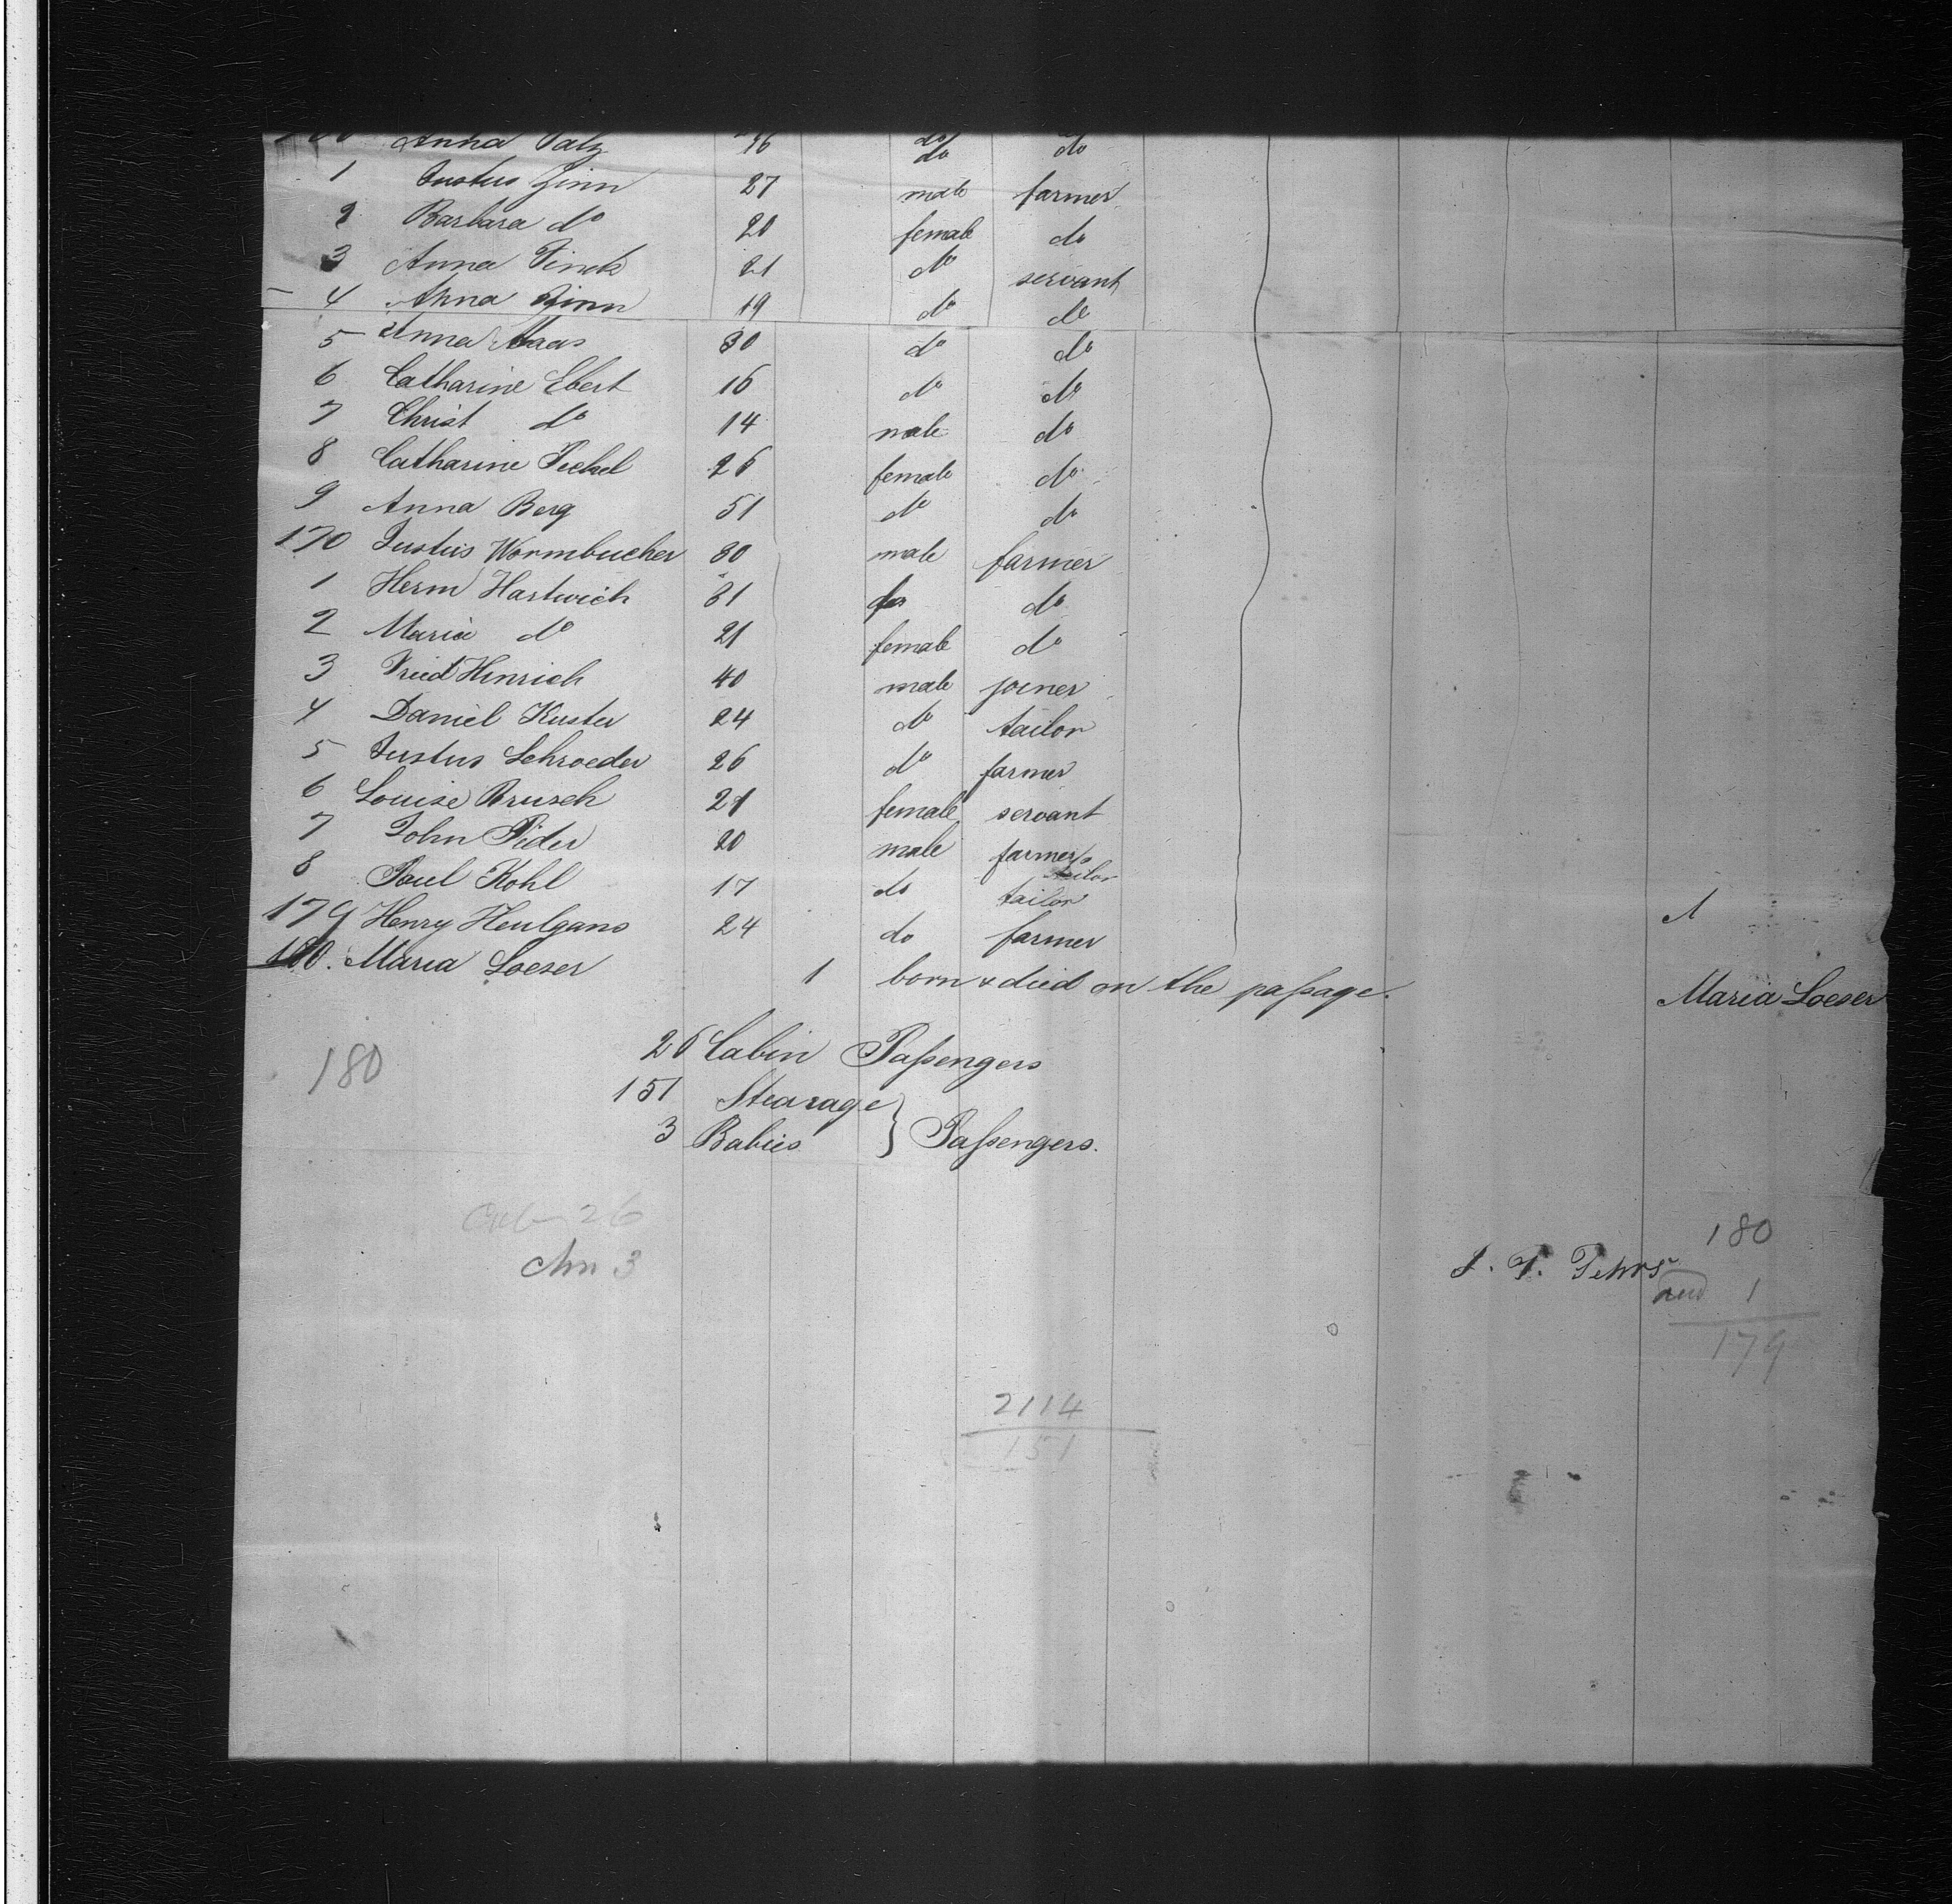 Anna 16 do do
1 Justus Zinn 27 male farmer
2 Barbara do 20 female do
3 Anna Finck 21 do servant
4 Anna Zinn 19 do do
5 Anna Maas 30 do do
6 Catharine Ebert 16 do do
7 Christ do 14 male do
8 Catharine 26 female do
9 Anna Berg 51 do do
170 Justus Wormbucher 30 male farmer
1 Herm Hartwich 31 do do
2 Maria do 21 female do
3 Fried Hinrich 40 male joiner
4 Daniel Kuster 24 do tailor
5 Justus Schroeder 26 do farmer
6 Louise Brusch 21 female servant
7 John Fider 20 male farmer
tailor
8 Paul Kohl 17 do tailor
179 Henry Heulgans 24 do farmer 1
180. Maria Loeser 1 born & died on the passage. Maria Loeser
26 Cabin Passengers
180
151 Stearage } Passengers.
3 Babies
26
3
180
1
179
2114
151